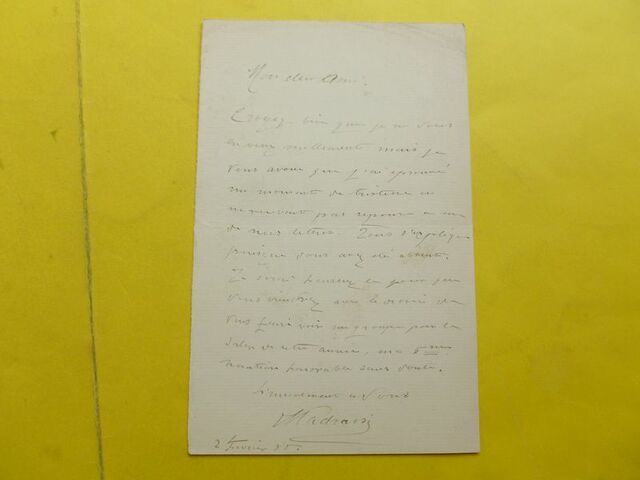 Mon cher Ami.
Croyez bien que je ne vous
en veux nullement mais je
vous avoue que j'ai éprouvé
un moment de tristesse en
ne recevant pas réponse à une
de mes lettres. Tout s'explique
puisque vous avez été absent.
Je serai heureux le jour que
vous viendrez avec le désir de
vous faire voir un groupe pour le
Salon de cette année, ma
mention honorable sans doute.
Sincèrement à vous
2 février